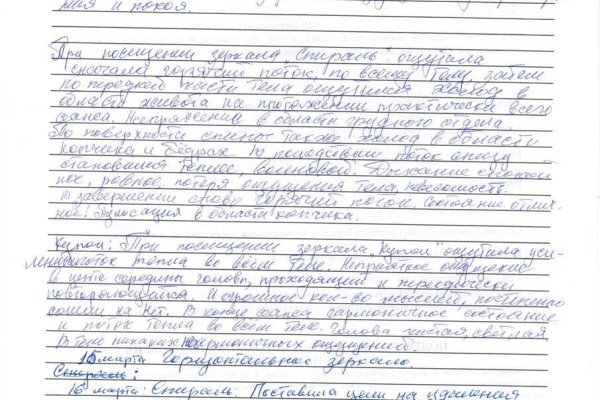 мия и покоя.
При посещении зеркала "Спираль" ощутила
сначала горячий поток, по всему телу, затем
по передней части тела ощущался холод в
области живота на протяжении практически всего
сеанса. Напряжение в области грудного отдела.
По поверхности спины также холод в области
копчика и бедрах. В последствии поток снизу
становился теплее, волновой. Дыхание спокой
ное, ровное, потеря ощущения тела, невесомость.
В завершении снова горячий поток. Состояние отлич-
ное. Пульсация в области копчика.
Купол: При посещении зеркала "Купол" ощутила уси-
ление поток тепла во всем теле. Неприятное ощущение
в центе середины головы, проходящий и переодически
повторяющийся. И огромное кол-во мыслей, постепенно
сошли на нет. В конце сеанса гармоничное состояние
и поток тепла во всем теле. Голова чистая, светлая,
в теле никаких не гармоничных ощущений.
15 марта Горизонтальное зеркало.
Спираль:
16 марта: Спираль. Поставила цели на удаления